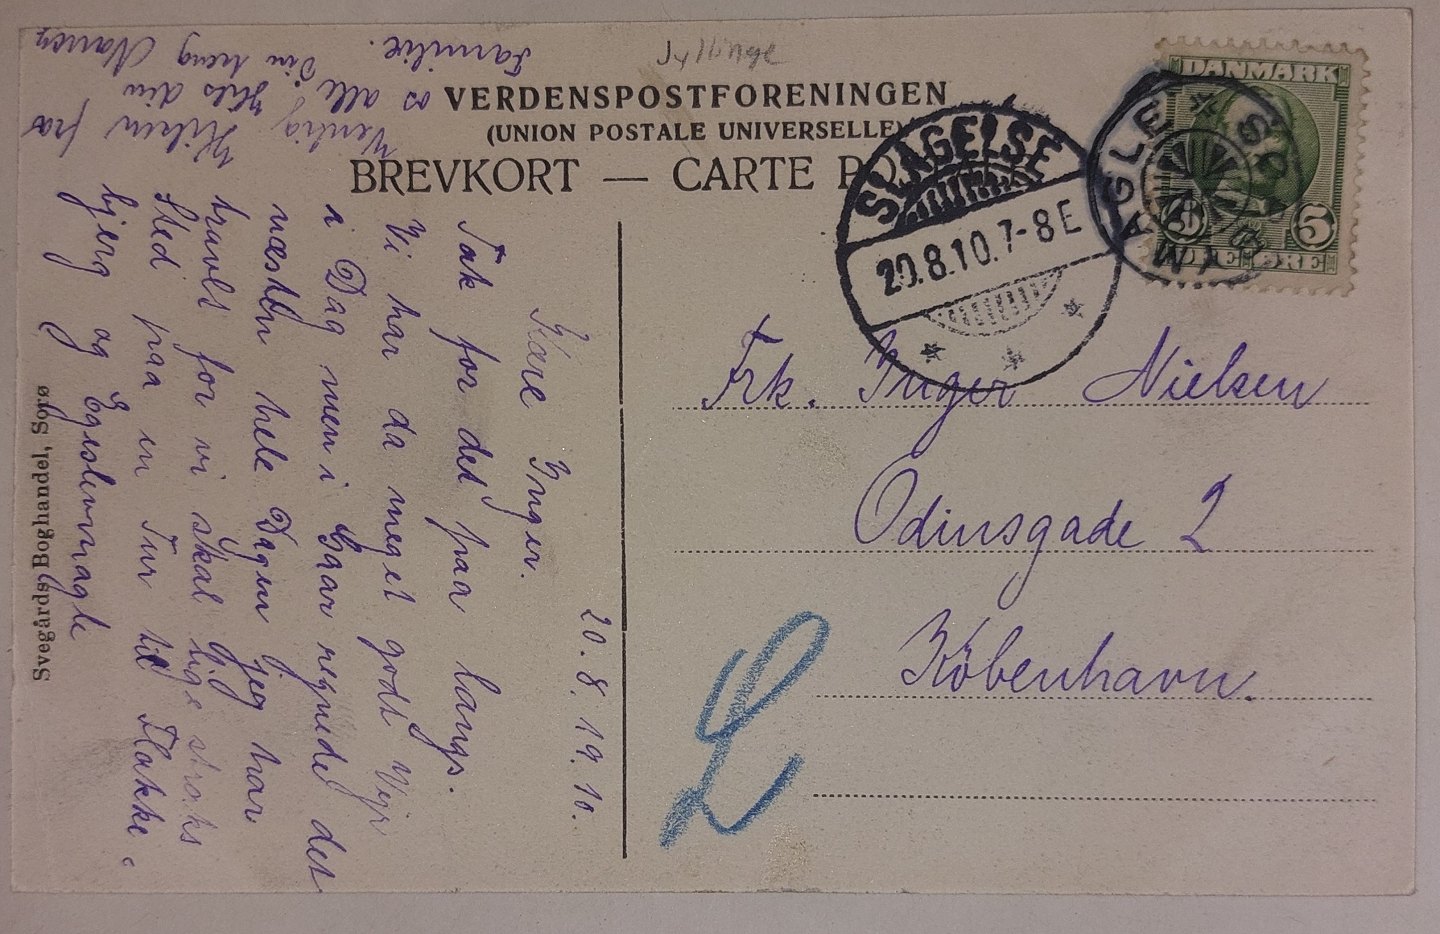 Jyllinge
VERDENSPOSTFORENINGEN
(UNION POSTALE UNIVERSELLE)
BREVKORT — CARTE PO
DANMARK
5 5
ØRE
SLAGELSE
20.8.10.7-8E
MAGLE SO
Frk. Inger Nielsen
Odinsgade 2
København.
L
20.8.1910.
Kære Inger.
Tak for det paa langs.
Vi har da meget godt Vejr
i Dag men i Gaar regnede det
næsten hele Dagen jeg har
travlt for vi skal lige straks
Sted paa en Tur til Flakke-
bjerg og Egslevmagle
Hilsen fra
os alle Hils din
Familie. Din heng Nancy
Venlig
Svegårds Boghandel, Sorø